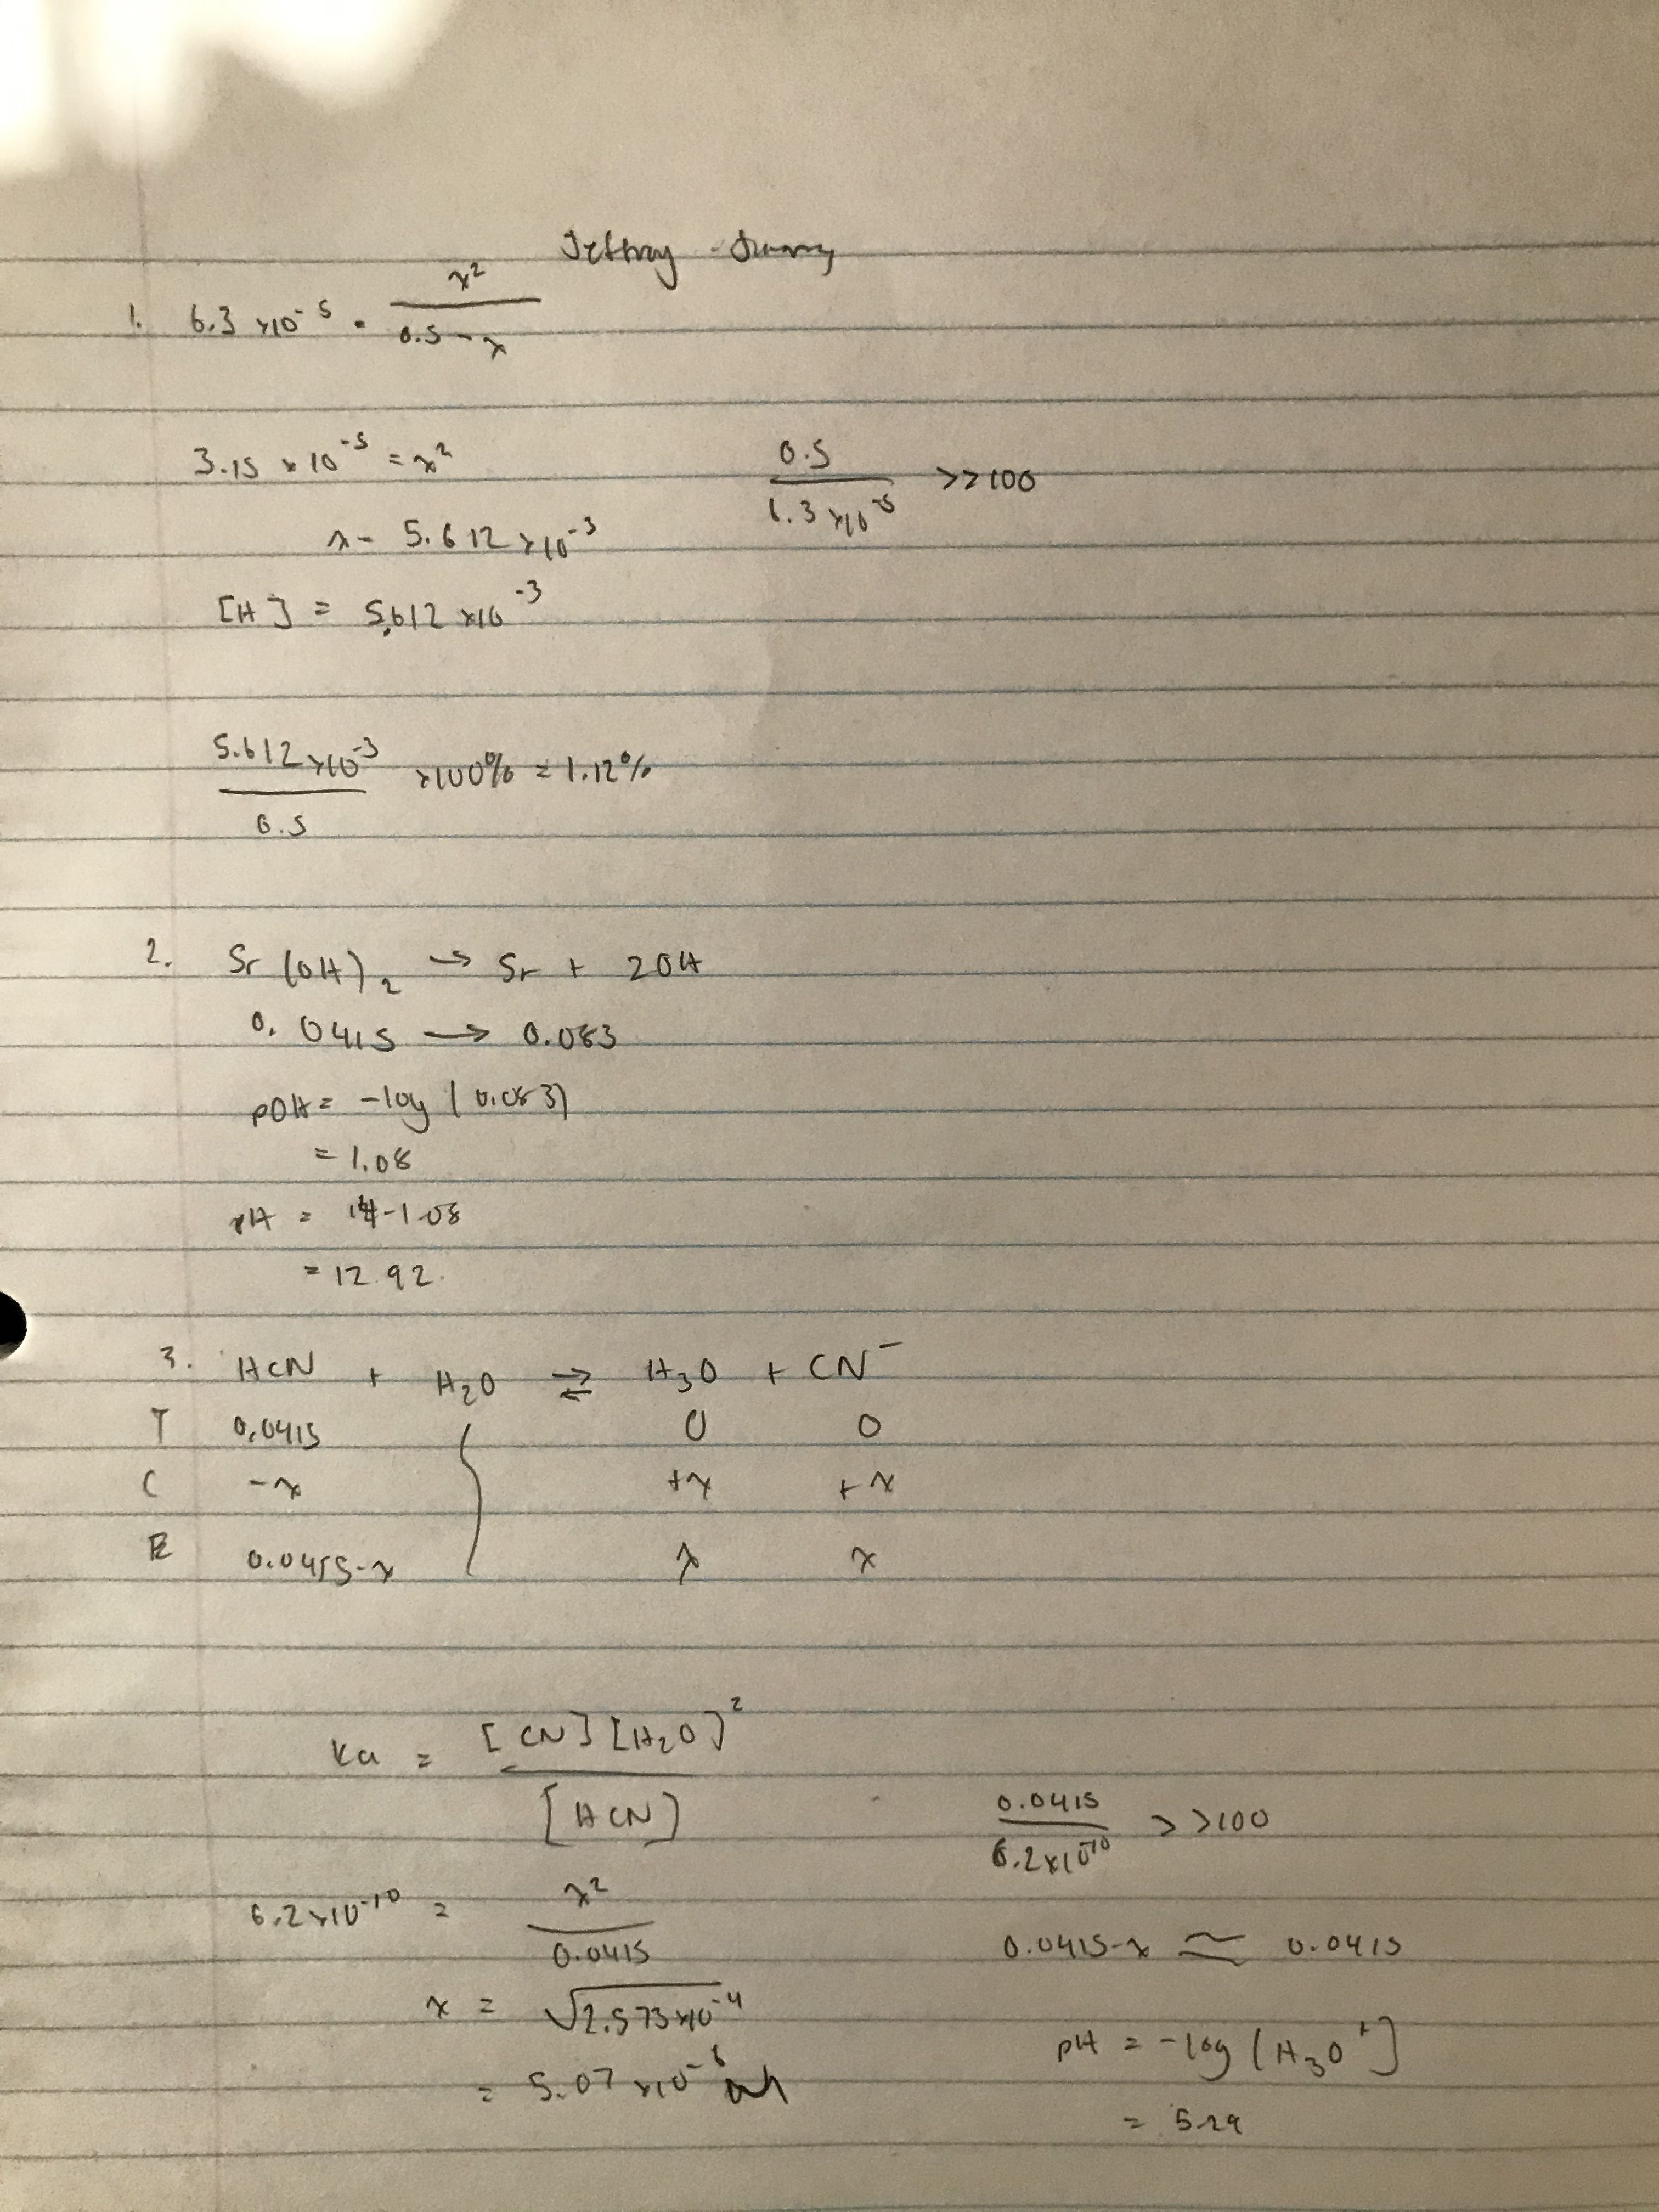 Jeffrey
1. 6.3 ×10^-5 = x²/(0.5 - x)
3.15 × 10^-5 = x²
0.5/(6.3 ×10^-5) >>100
x = 5.612 ×10^-3
[H] = 5.612 ×10^-3
(5.612 ×10^-3)/0.5 ×100% = 1.12%
2. Sr (OH)₂ → Sr + 2OH
0.0415 → 0.083
pOH = -log (0.083)
= 1.08
pH = 14-1.08
= 12.92
3. HCN + H₂O ⇌ H₃O + CN⁻
I 0.0415 0 0
C -x +x +x
E 0.0415-x x x
Ka = [CN][H₂O]²/[HCN]
0.0415/(6.2×10^-10) >>100
6.2×10^-10 = x²/0.0415
0.0415-x ≃ 0.0415
x = √(2.573×10^-4)
pH = -log [H₃O⁺]
= 5.07 ×10^-6
= 5.29